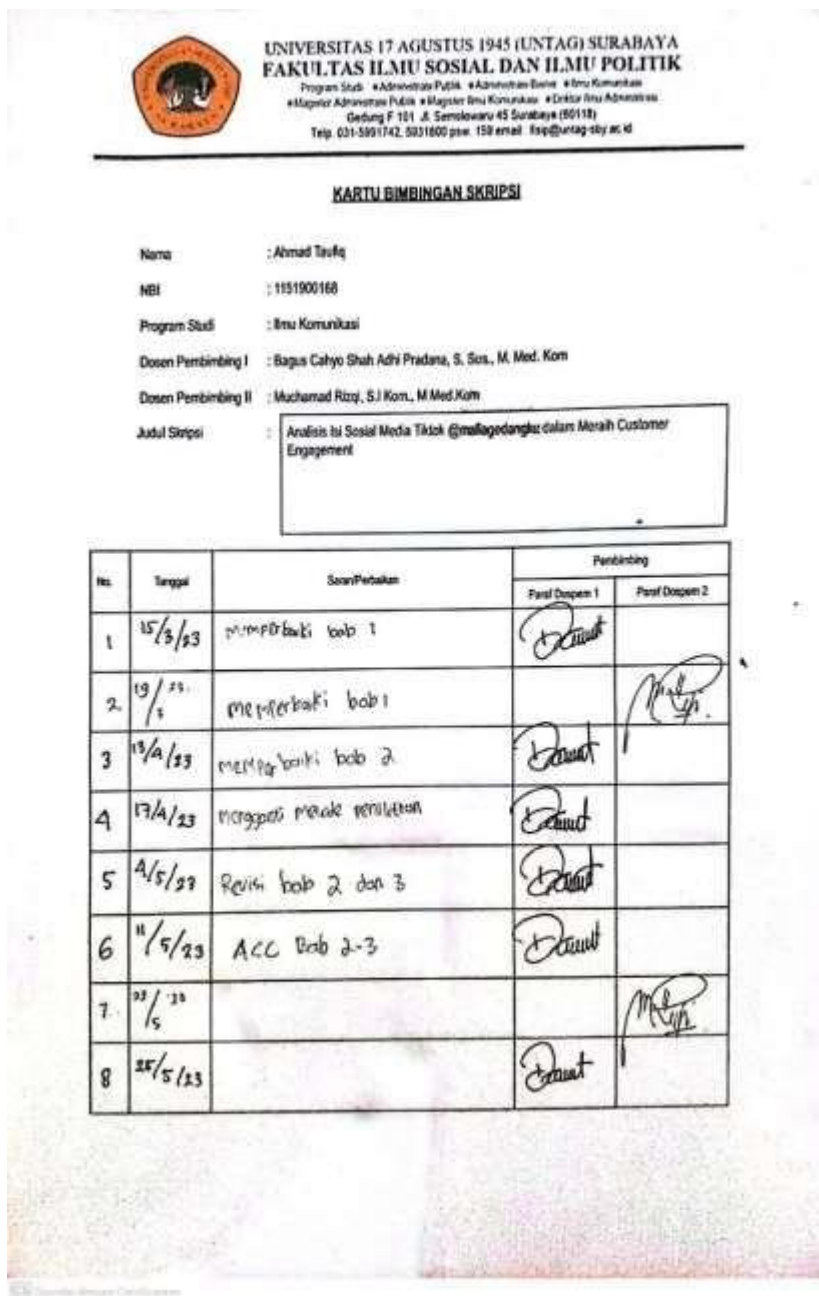 UNIVERSITAS 17 AGUSTUS 1945 (UNTAG) SURABAYA
FAKULTAS ILMU SOSIAL DAN ILMU POLITIK
Program Studi Administrasi Publik Administrasi Bisnis Ilmu Komunikasi
Magister Administrasi Publik Magister Ilmu Komunikasi Doktor Ilmu Administrasi
Gedung F 101 Jl. Semolowaru 45 Surabaya (60118)
Telp. 031-5991742, 5931800 psw. 159 email fisip@untag-sby.ac.id
KARTU BIMBINGAN SKRIPSI
Nama : Ahmad Taufiq
NBI : 1151900168
Program Studi : Ilmu Komunikasi
Dosen Pembimbing I : Bagus Cahyo Shah Adhi Pradana, S. Sos., M. Med. Kom
Dosen Pembimbing II : Muchamad Rizqi, S.I Kom., M Med.Kom
Judul Skripsi : Analisis Isi Sosial Media Tiktok dalam Meraih Customer
Engagement
No. Tanggal Saran/Perbaikan Pembimbing
Paraf Dospem 1 Paraf Dospem 2
1 15/3/23 memperbaiki bab 1
2. 19/3 memperbaiki bab 1
3 13/4/23 memperbaiki bab 2
4 17/4/23 mengganti
5 4/5/23 Revisi bab 2 dan 3
6 11/5/23 ACC Bab 2-3
7.
8 25/5/23